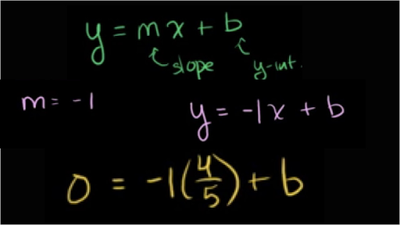 y = mx + b
slope y-int.
m = -1 y = -1x + b
0 = -1(4/5) + b